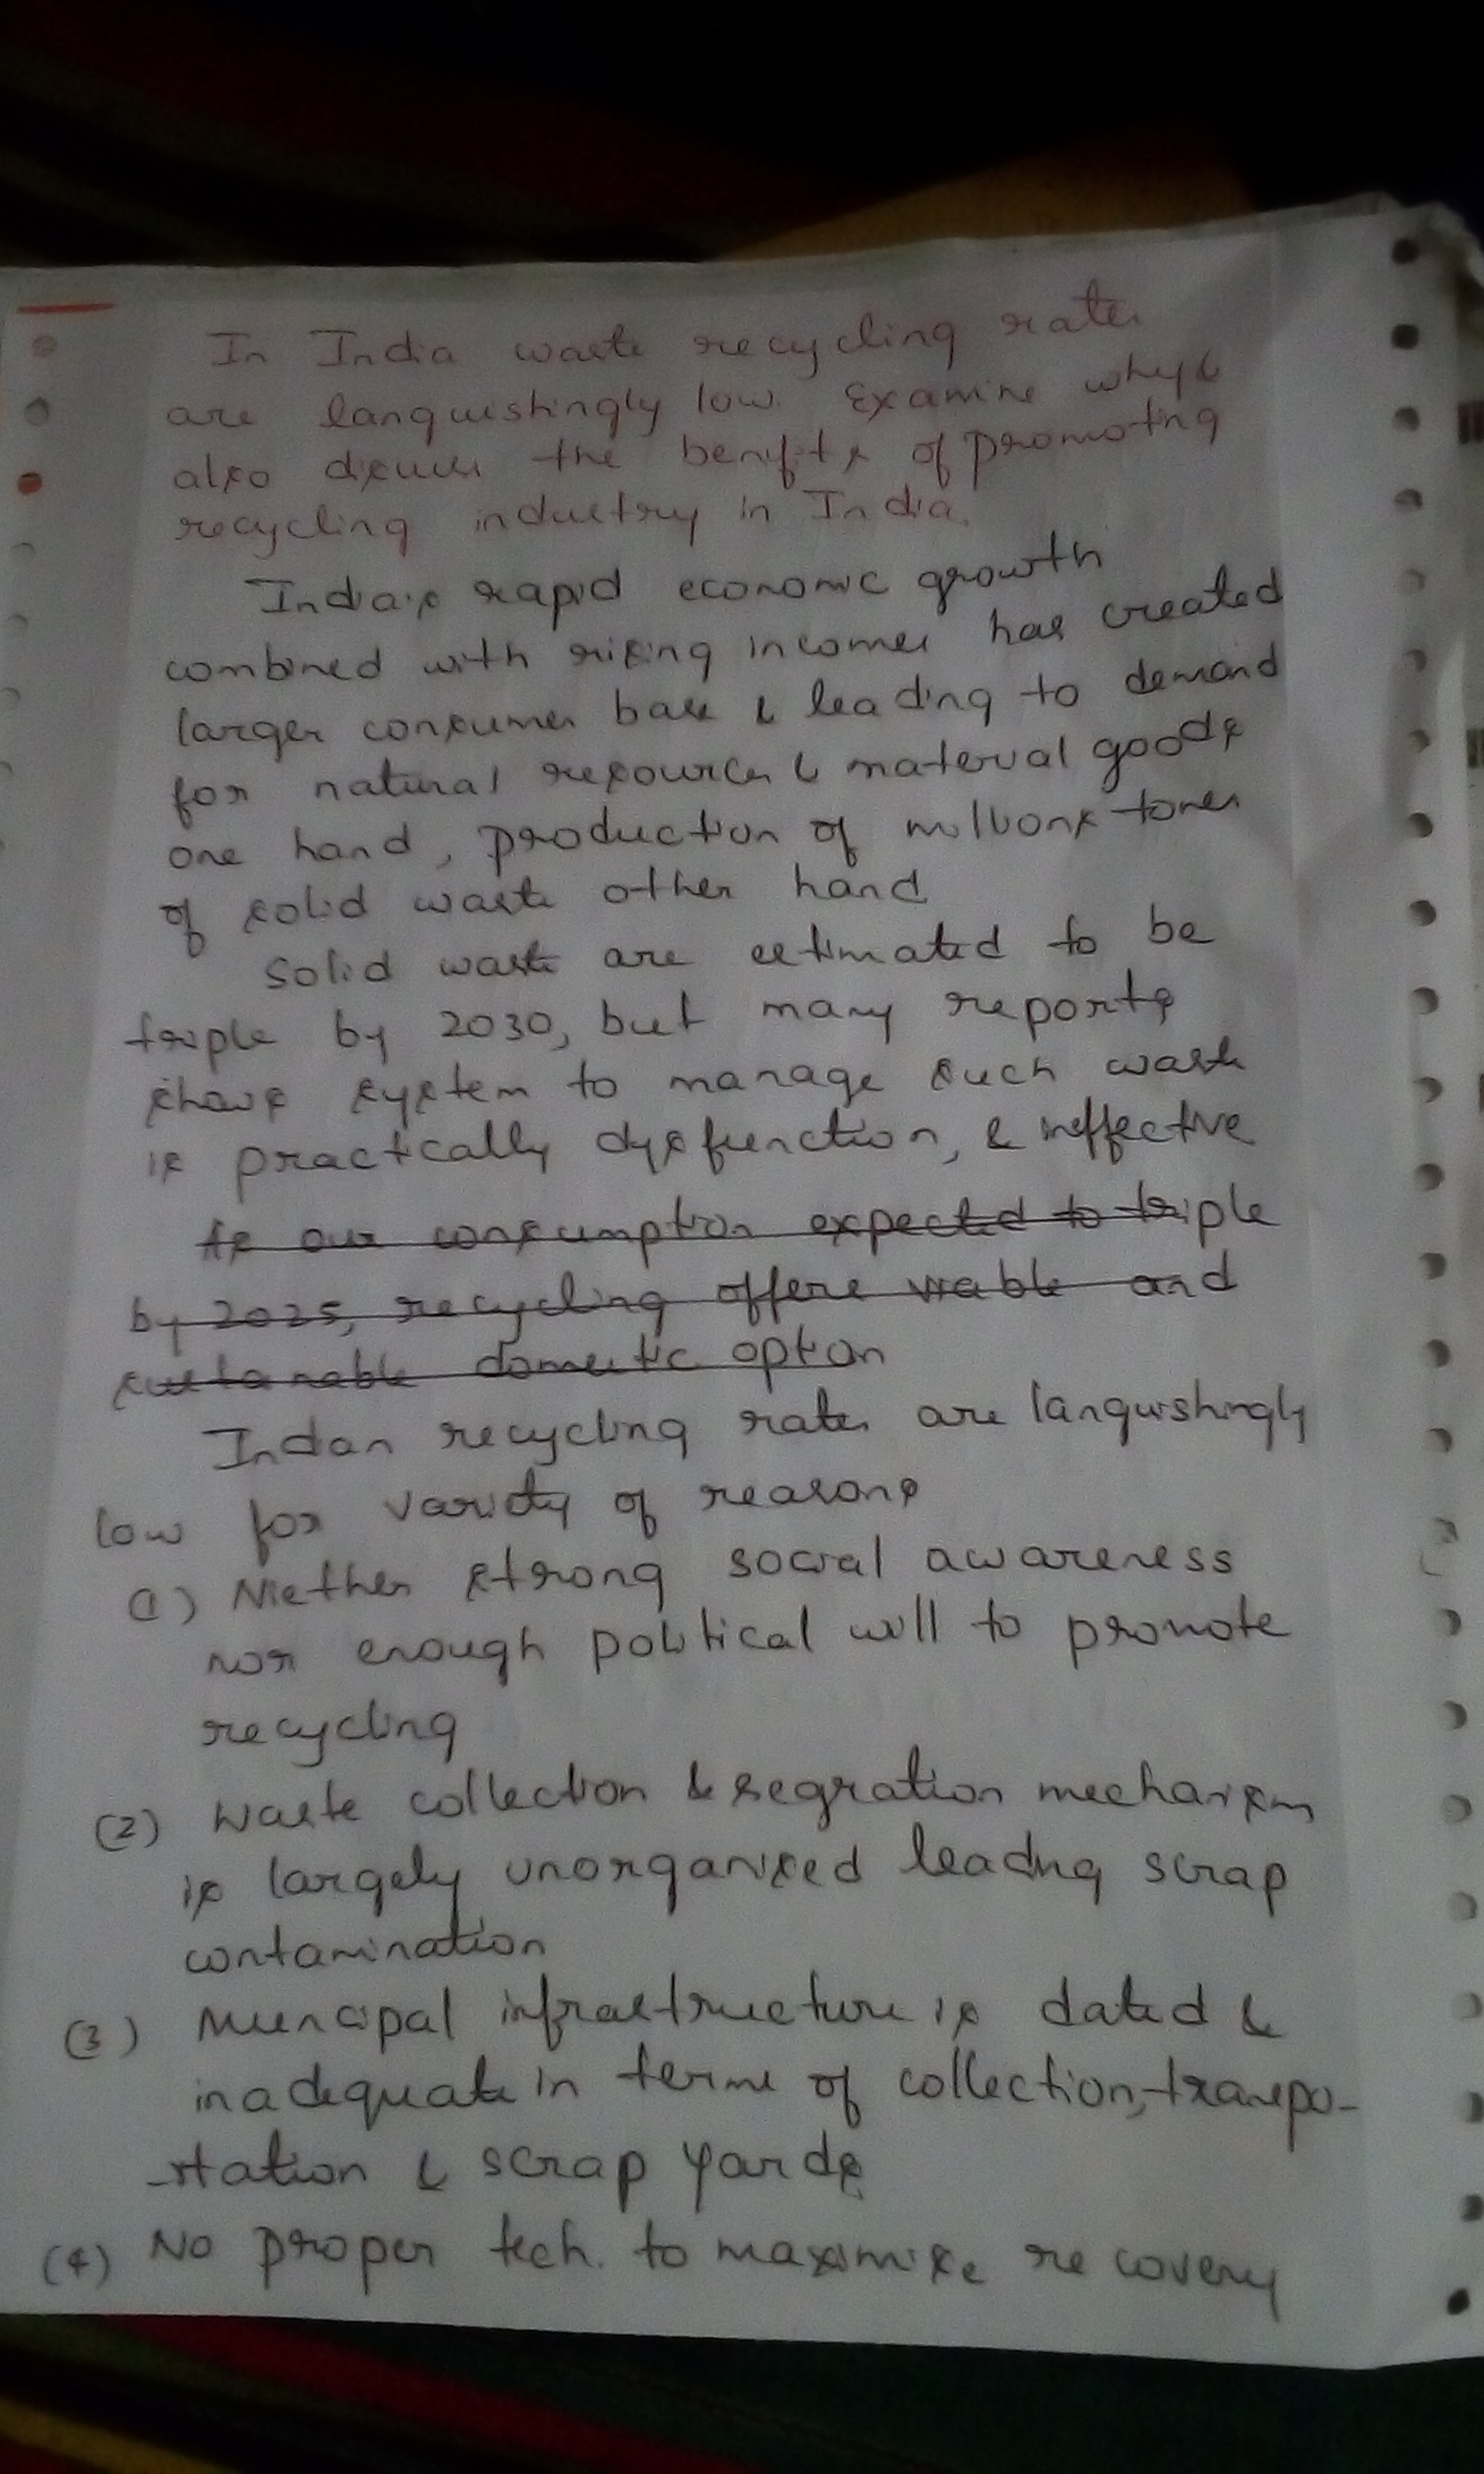 In India waste recycling rates
are languishingly low. Examine why &
also discuss the benifits of promoting
recycling industry in India.
India's rapid economic growth
combined with rising incomes has created
larger consumer base & leading to demand
for natural resources & material goods
one hand, production of millions tones
of solid waste other hand
Solid waste are estimated to be
triple by 2030, but many reports
shows system to manage such waste
is practically dysfunction, & ineffective
As our consumption expected to triple
by 2025, recycling offers viable and
sustainable domestic option
Indian recycling rates are languishingly
low for variety of reasons
(1) Niether strong social awareness
nor enough political will to promote
recycling
(2) Waste collection & segration mechanism
is largely unorganised leading scrap
contamination
(3) Muncipal infrastructure is dated &
inadequate in terms of collection, transpo-
-rtation & scrap yards
(4) No proper tech. to maximise recovery